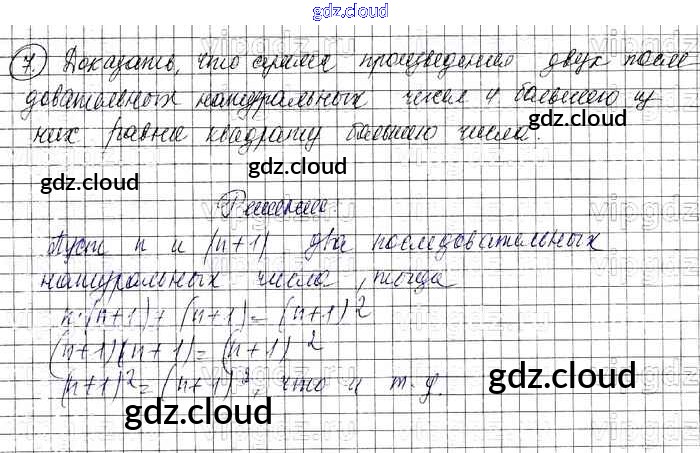 gdz.cloud
7. Доказать, что сумма произведения двух после
довательных натуральных чисел и большего из
них равна квадрату большего числа.
gdz.cloud
gdz.cloud
gdz.cloud
Решение.
Пусть n и (n+1) два последовательных
натуральных числа, тогда
n·(n+1)+(n+1)=(n+1)²
(n+1)(n+1)=(n+1)²
(n+1)²=(n+1)², что и т.д.
gdz.cloud
gdz.cloud